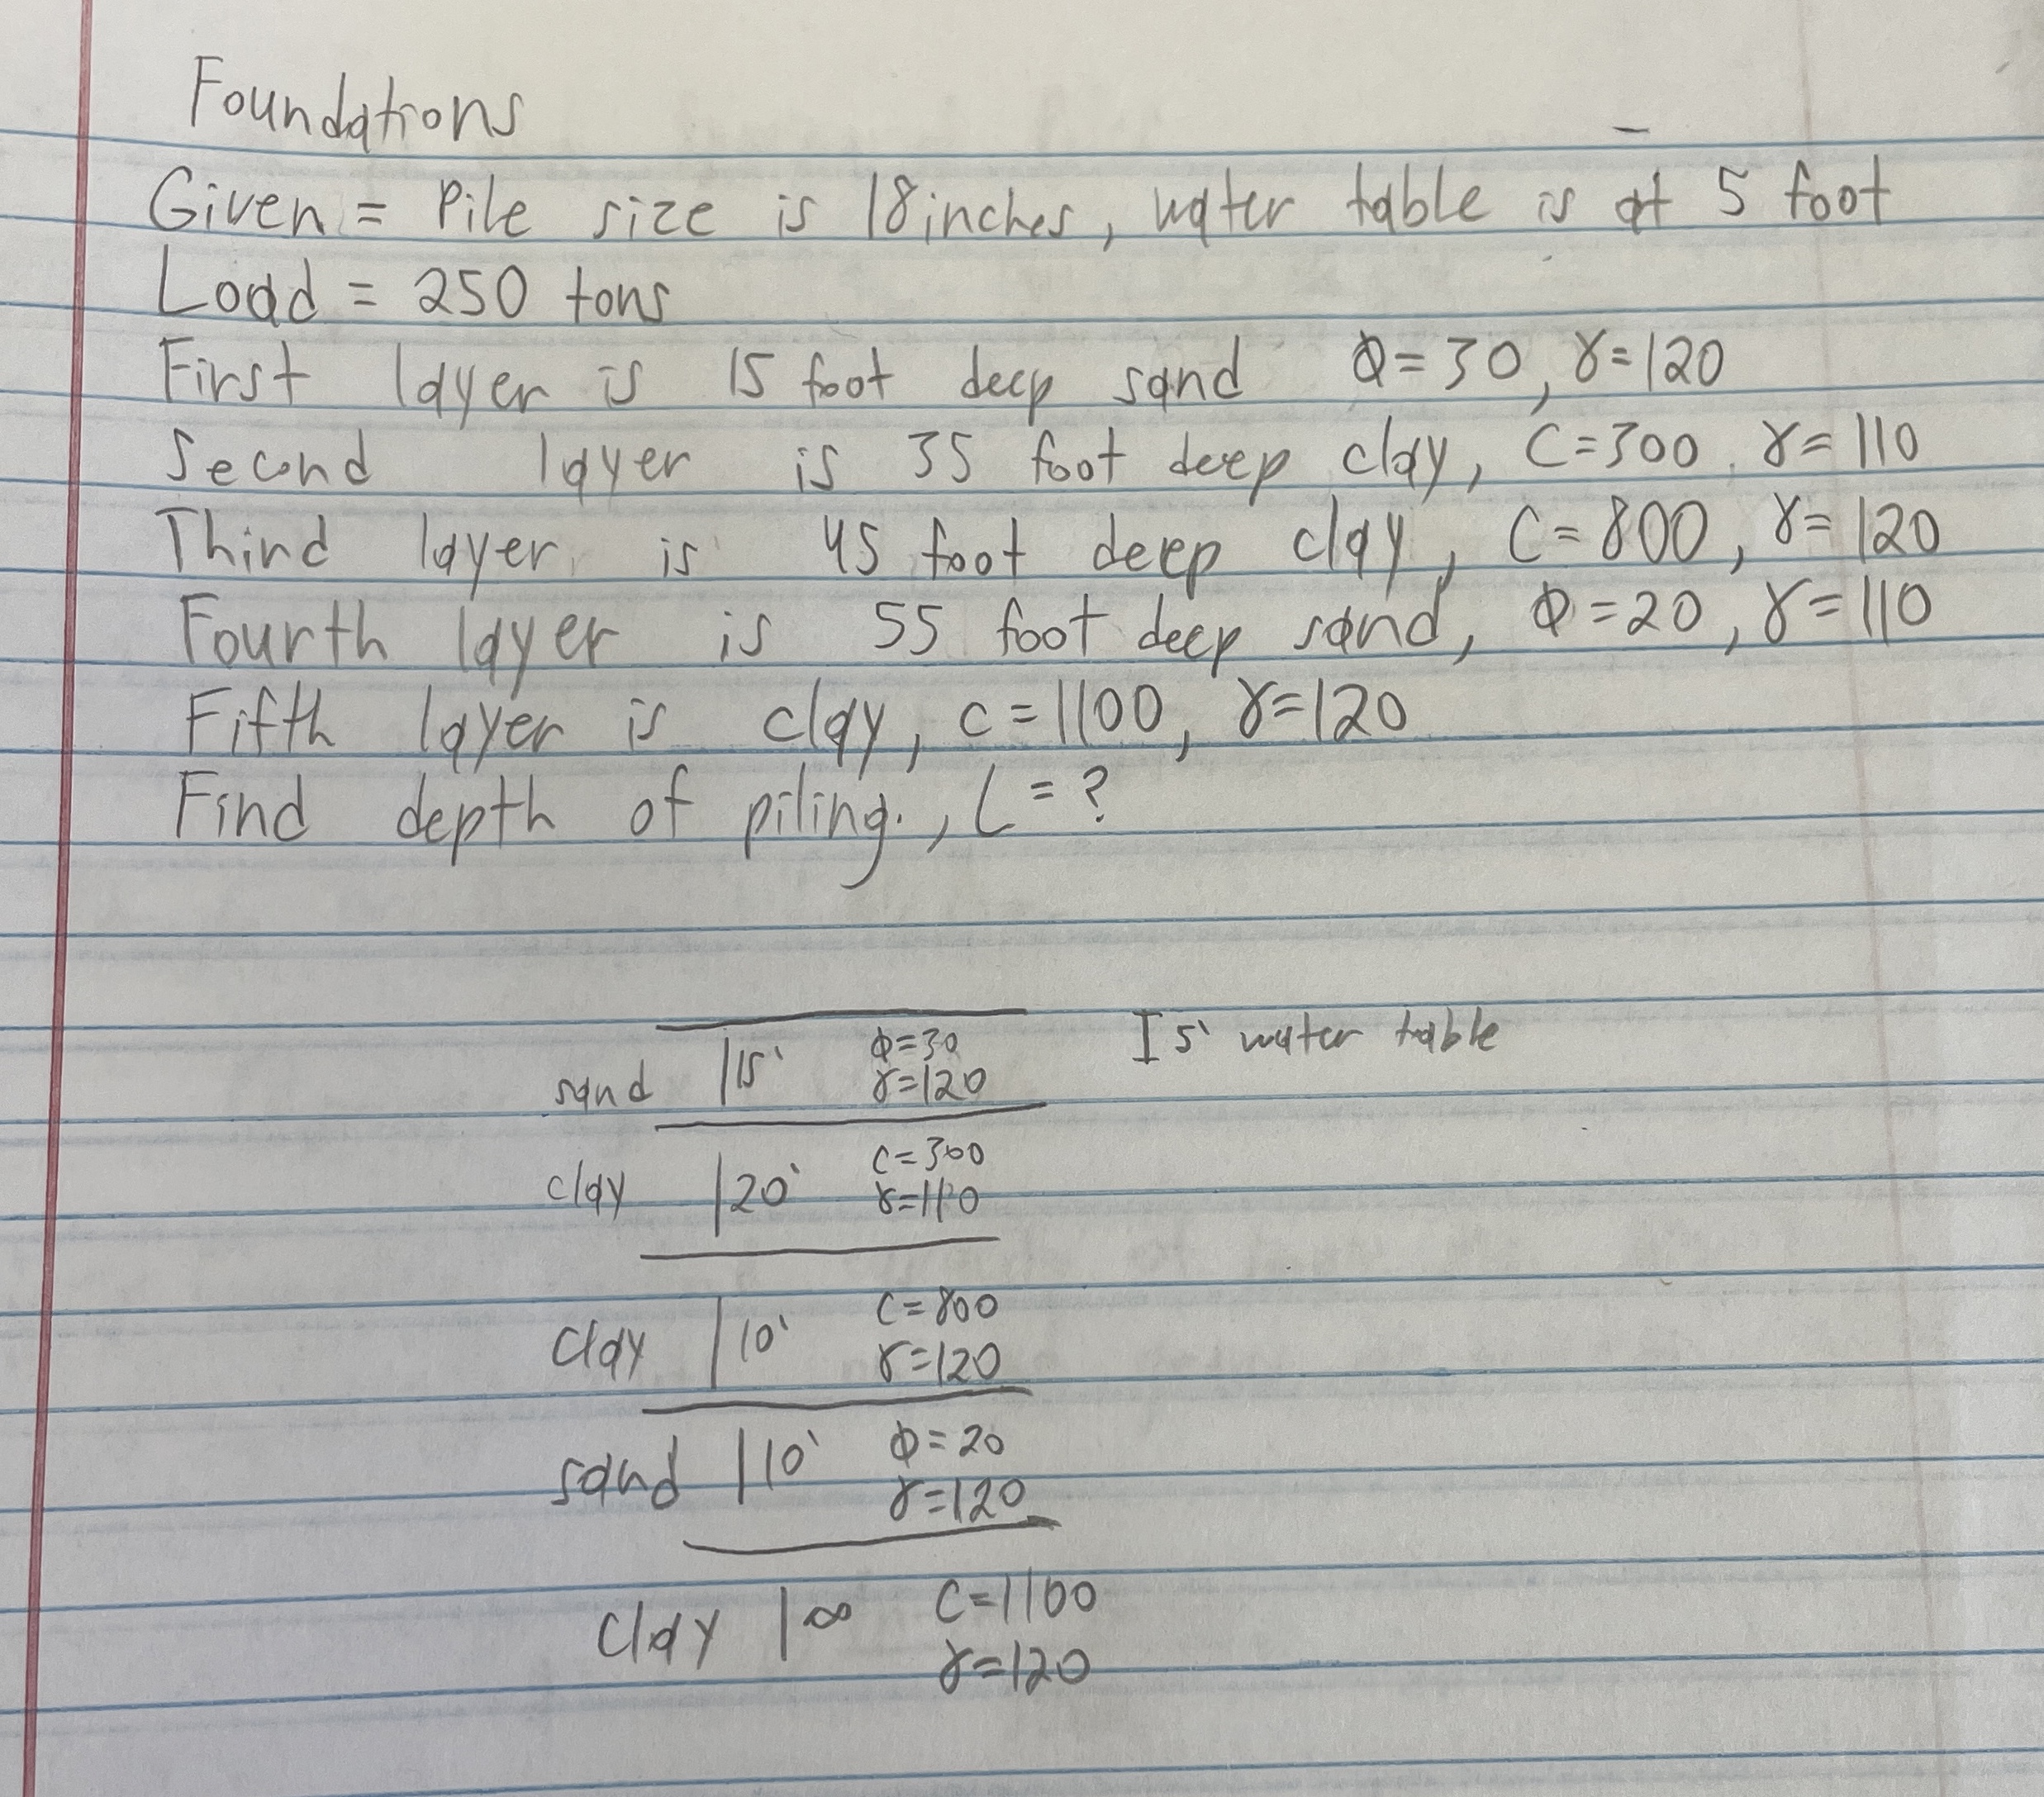 Foundations
Given = Pile size is 18 inches, water table is at 5 foot
Load = 250 tons
First layer is 15 foot deep sand Φ=30, γ=120
Second layer is 35 foot deep clay, C=300, γ=110
Third layer is 45 foot deep clay, C=800, γ=120
Fourth layer is 55 foot deep sand, Φ=20, γ=110
Fifth layer is clay, c=1100, γ=120
Find depth of piling., L=?
I 5' water table
sand | 15' Φ=30
γ=120
clay | 20' C=300
γ=110
clay | 10' C=800
γ=120
sand | 10' Φ=20
γ=120
clay | ∞ C=1100
γ=120